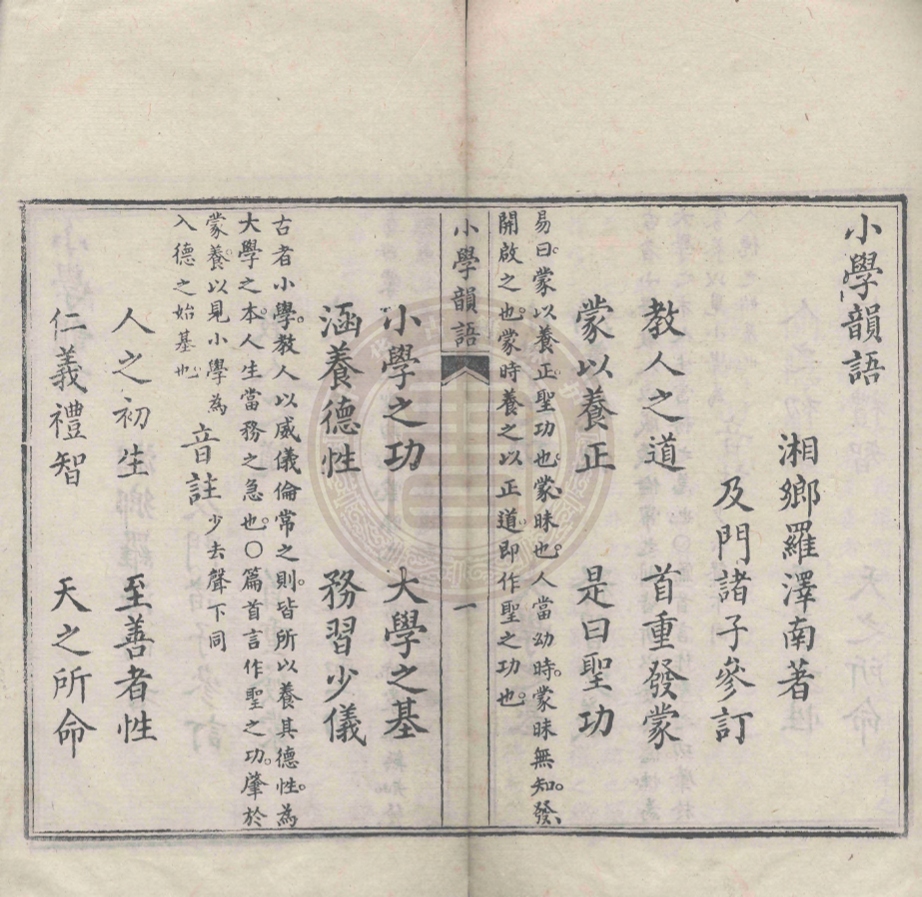 小學韻語
湘鄉羅澤南著
及門諸子參訂
教人之道 首重發蒙
蒙以養正 是曰聖功
易曰。蒙以養正。聖功也。蒙、昧也。人當幼時。蒙昧無知。發、
開啟之也。蒙時養之以正道。即作聖之功也。
小學韻語 一
小學之功 大學之基
涵養德性 務習少儀
古者小學。教人以威儀倫常之則。皆所以養其德性。為
大學之本。人生當務之急也。〇篇首言作聖之功。肇於
蒙養。以見小學為
入德之始基也。
音註 少去聲下同
人之初生 至善者性
仁義禮智 天之所命